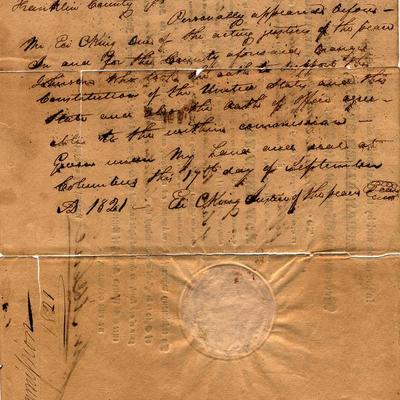 Franklin County
Personally appeared before
Me Eli C King One of the acting justices of the peace
in and for the County aforesaid Orange
Johnson who took the oath to support the
Constitution of the United States and this
State and also the oath of office agree-
able to the within commission
Given under My hand and seal at
Columbus this 17th day of September
AD 1821 - Eli C King Justice of the peace
1821